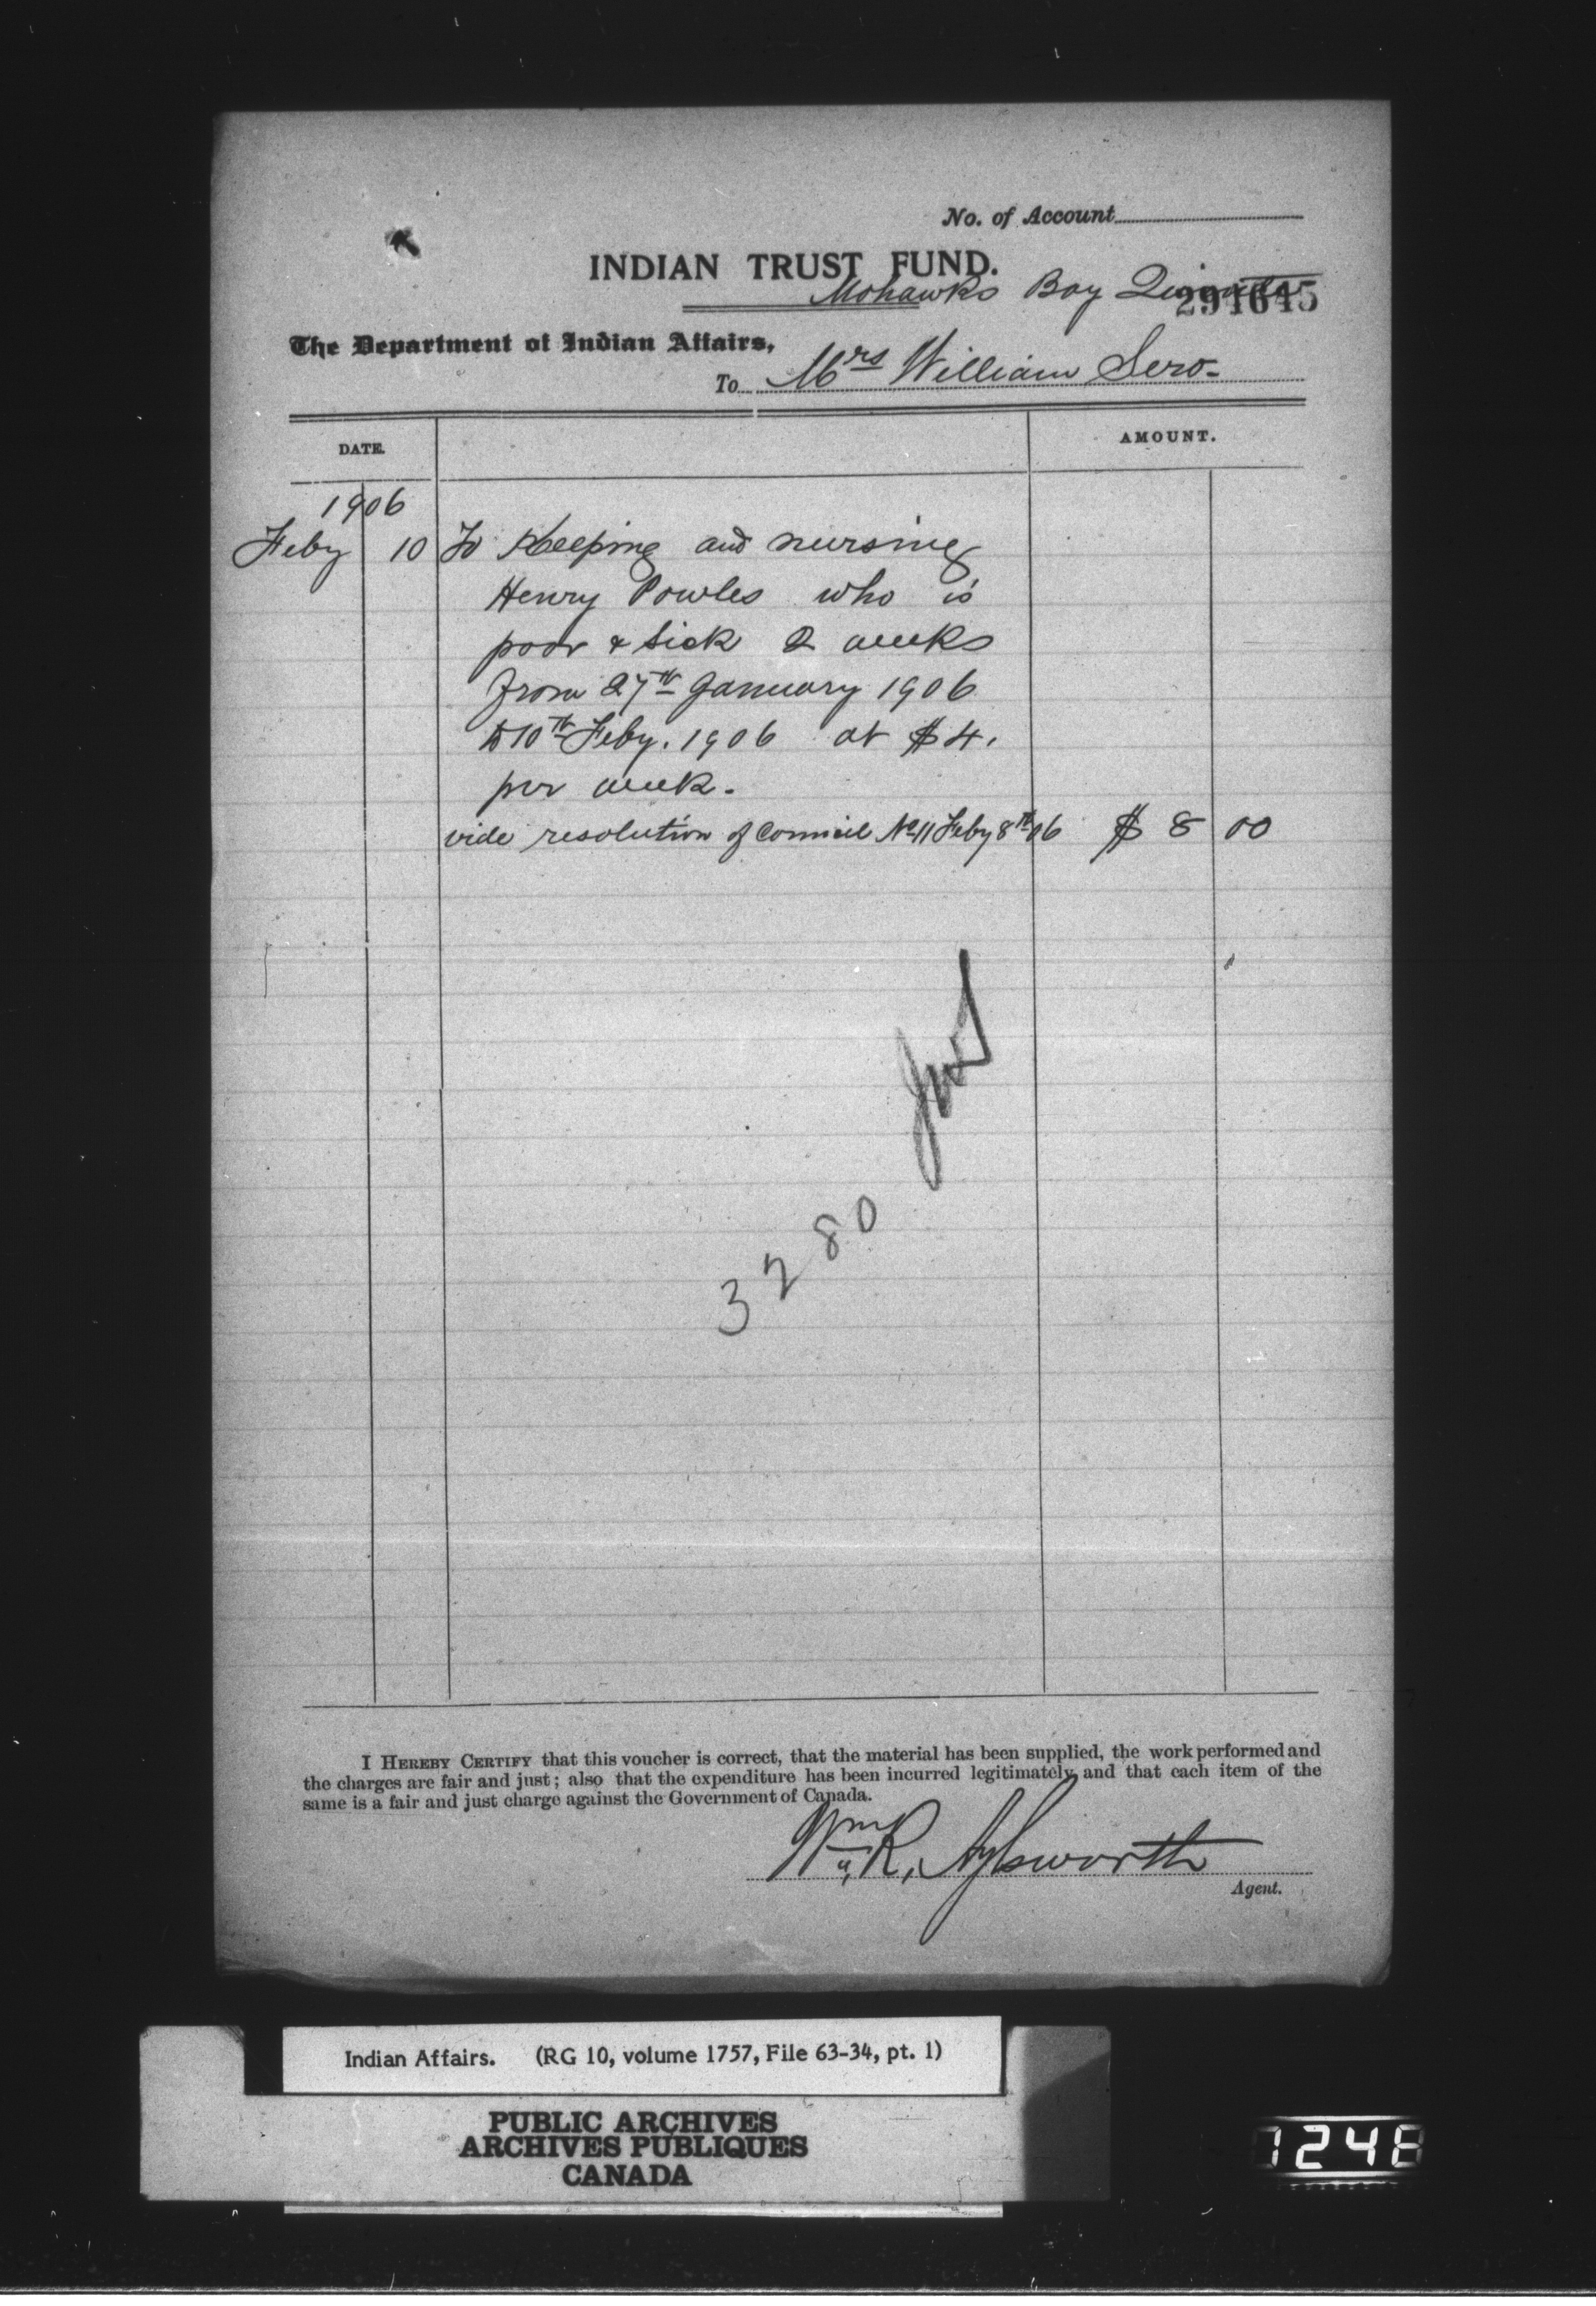 No. of Account
INDIAN TRUST FUND.
Mohawks Bay Quinte
294645
The Department of Indian Affairs,
To Mrs William Sero-
DATE.
AMOUNT.
1906
Feby 10 To Keeping and nursing
Henry Powles who is
poor & sick 2 weeks
from 27th January 1906
to 10th Feby. 1906 at $4.
per week.
vide resolution of Council No 11 Feby 8th 06 $ 8 00
3280
I HEREBY CERTIFY that this voucher is correct, that the material has been supplied, the work performed and
the charges are fair and just; also that the expenditure has been incurred legitimately and that each item of the
same is a fair and just charge against the Government of Canada.
Wm. R. Aylsworth
Agent.
Indian Affairs. (RG 10, volume 1757, File 63-34, pt. 1)
PUBLIC ARCHIVES
ARCHIVES PUBLIQUES
CANADA
1248